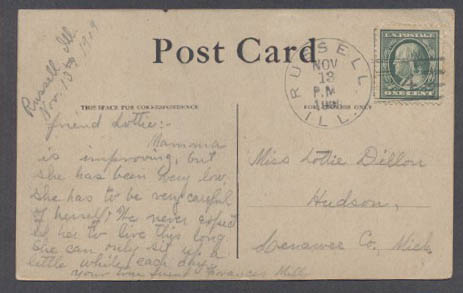 Russell, Ill.
Nov. 13th 1909
Post Card
RUSSELL
NOV
13
P.M.
ILL.
U.S. POSTAGE
ONE CENT
THIS SPACE FOR CORRESPONDENCE
ONLY
Friend Lottie:-
Mamma
is improving, but
she has been very low,
she has to be very careful
of herself, We never expect
ed her to live this long
She can only sit up a
little while each day.
your true friend Frances Mill
Miss Lottie Dillon
Hudson,
Lenawee Co, Mich